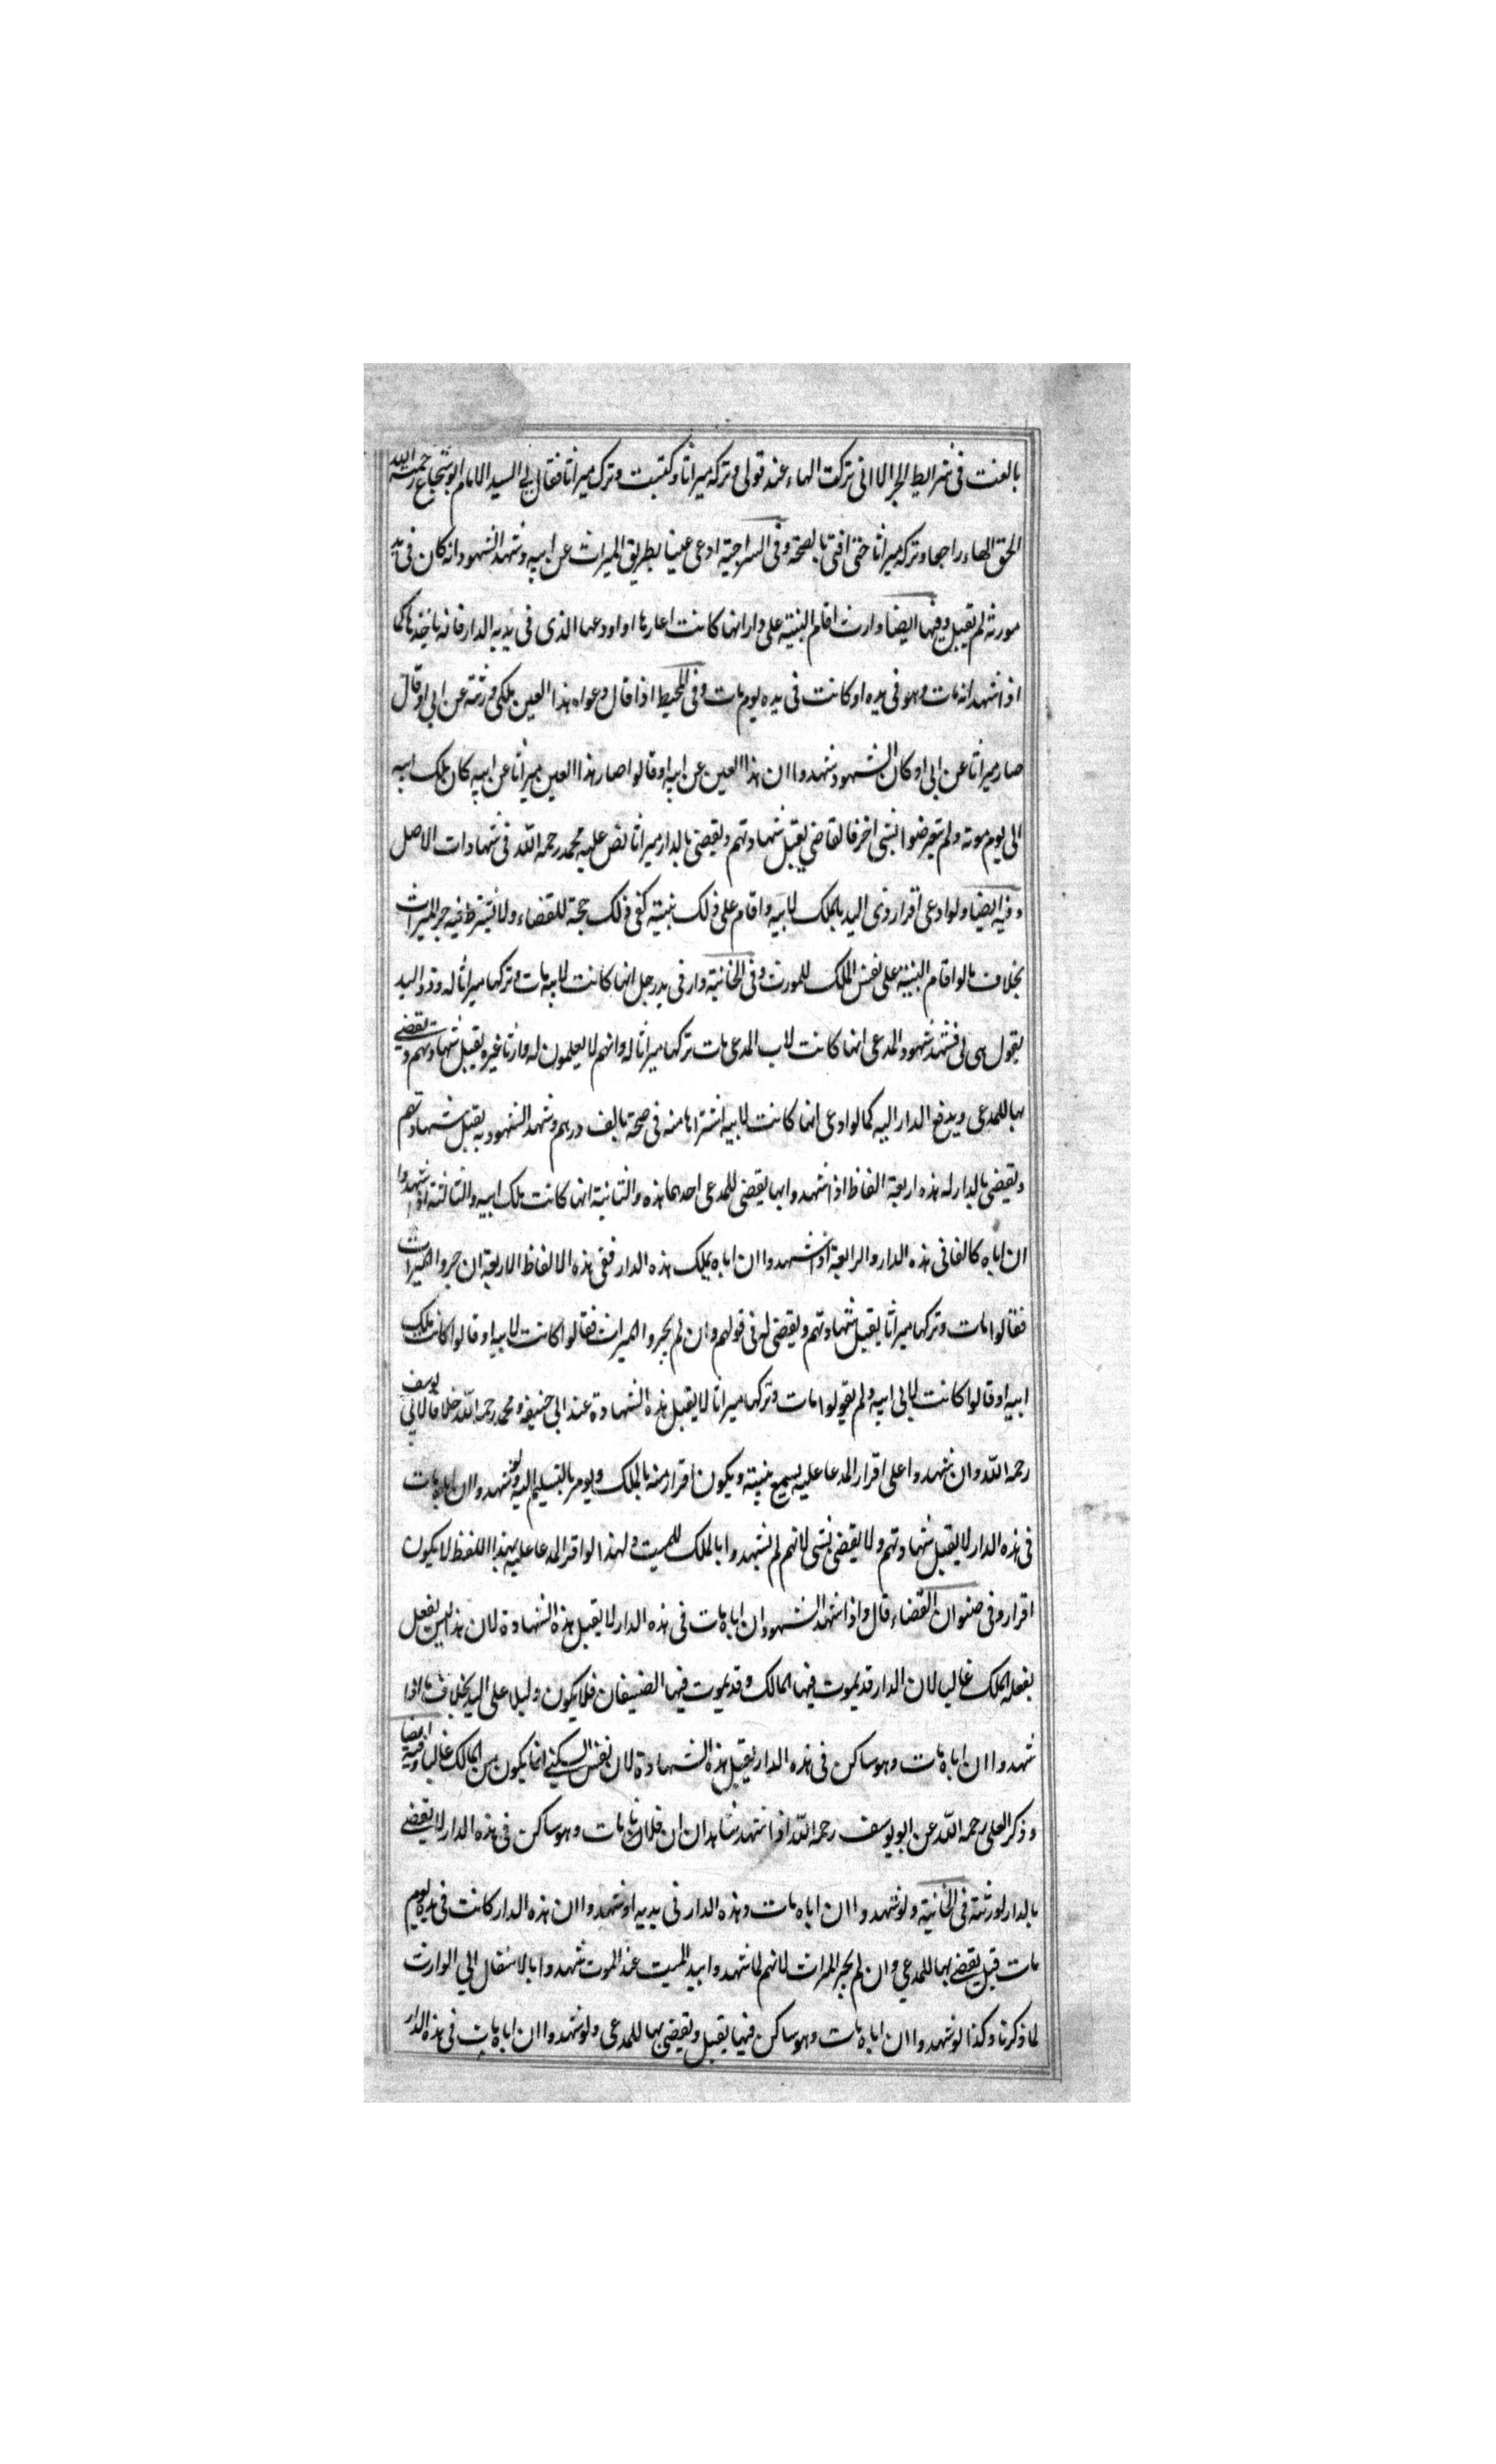 بالغت فى شرايط الجر الا انى تركت الهاء عند قولى وتركه ميراثا وكتبت وترك ميراثا فقال لى السيد الامام ابو شجاع رحمه الله
الحق الهاء راجعا وتركه ميراثا حتى افتى بالصحة وفى السراجية ادعى عينا بطريق الميراث عن ابيه وشهد الشهود انه كان فى يد
مورثه لم يقبل وفيها ايضا وارث اقام البينة على دار انها كانت اعارها او اودعها الذى فى يديه الدار فانه ياخذها كما
اذا شهد انه مات وهو فى يده او كانت فى يده يوم مات وفى المحيط اذا قال دعواه هذا العين ملكى ورثته عن ابى او قال
صار ميراثا عن ابى او كان الشهود شهدوا ان هذا العين عن ابيه او قالوا صار هذا العين ميراثا عن ابيه كان ملك ابيه
الى يوم موته ولم يتعرضوا بشى اخر فالقاضى يقبل شهادتهم ويقضى بالدار ميراثا نص عليه محمد رحمه الله فى شهادات الاصل
وفيه ايضا ولو ادعى اقرار ذى اليد بالملك لابيه واقام على ذلك بينته كفى ذلك حجة للقضاء ولا يشترط فيه جر الميراث
بخلاف ما لو اقام البينة على نفس الملك للمورث وفى الخانية دار فى يد رجل انها كانت لابيه مات وتركها ميراثا له وذو اليد
يقول هى لى فشهد شهود المدعى انها كانت لاب المدعى مات تركها ميراثا له وانهم لا يعلمون له وارثا غيره يقبل شهادتهم ويقضى
بها للمدعى ويدفع الدار اليه كما لو ادعى انها كانت لابيه اشتراها منه فى صحة بالف درهم وشهد الشهود به يقبل شهادتهم
ويقضى بالدار له هذه اربعة الفاظ اذا شهدوا بها يقضى للمدعى احدها هذه والثانية انها كانت ملك ابيه والثالثة اذا شهدوا
ان اباه كا لفا فى هذه الدار والرابعة اذا شهدوا ان اباه يملك هذه الدار ففى هذه الالفاظ الاربعة ان جروا الميراث
فقالوا مات وتركها ميراثا يقبل شهادتهم ويقضى له فى قولهم وان لم يجروا الميراث فقالوا كانت لابيه او قالوا كانت ملك
ابيه او قالوا كانت لابى ابيه ولم يقولوا مات وتركها ميراثا لا يقبل هذه الشهادة عند ابى حنيفة ومحمد رحمه الله خلافا لابى يوسف
رحمه الله وان شهدوا على اقرار المدعا عليه يسمع بينته ويكون اقرار منه بالملك ويومر بالتسليم اليه ولو شهدوا ان اباه مات
فى هذه الدار لا يقبل شهادتهم ولا يقضى بشى لانهم لم يشهدوا بالملك للميت ولهذا لو اقر المدعا عليه بهذا اللفظ لا يكون
اقرار وفى صنوان القضاء قال واذا شهد الشهود ان اباه مات فى هذه الدار لا يقبل هذه الشهادة لان هذا ليس بفعل
يفعله الملك غالبا لان الدار قد يموت فيها المالك وقد يموت فيها الضيفان فلا يكون دليلا على اليد بخلاف ما اذا
شهدوا ان اباه مات وهو ساكن فى هذه الدار يقبل هذه الشهادة لان نفس السكنى انما يكون من المالك غالبا وفيه ايضا
وذكر العلى رحمه الله عن ابو يوسف رحمه الله اذا شهد شاهدان ان فلانا مات وهو ساكن فى هذه الدار لا يقضى
بالدار لورثته فى الخانية ولو شهدوا ان اباه مات وهذه الدار فى يديه او شهدوا ان هذه الدار كانت فى يده يوم
مات قبل يقضى بها للمدعي وان لم يجر المراث لانهم لما شهدوا بيد الميت عند الموت شهدوا بالانتقال الي الوارث
لما ذكرنا وكذا لو شهدوا ان اباه مات وهو ساكن فيها يقبل ويقضى بها للمدعى ولو شهدوا ان اباه مات فى هذه الدار